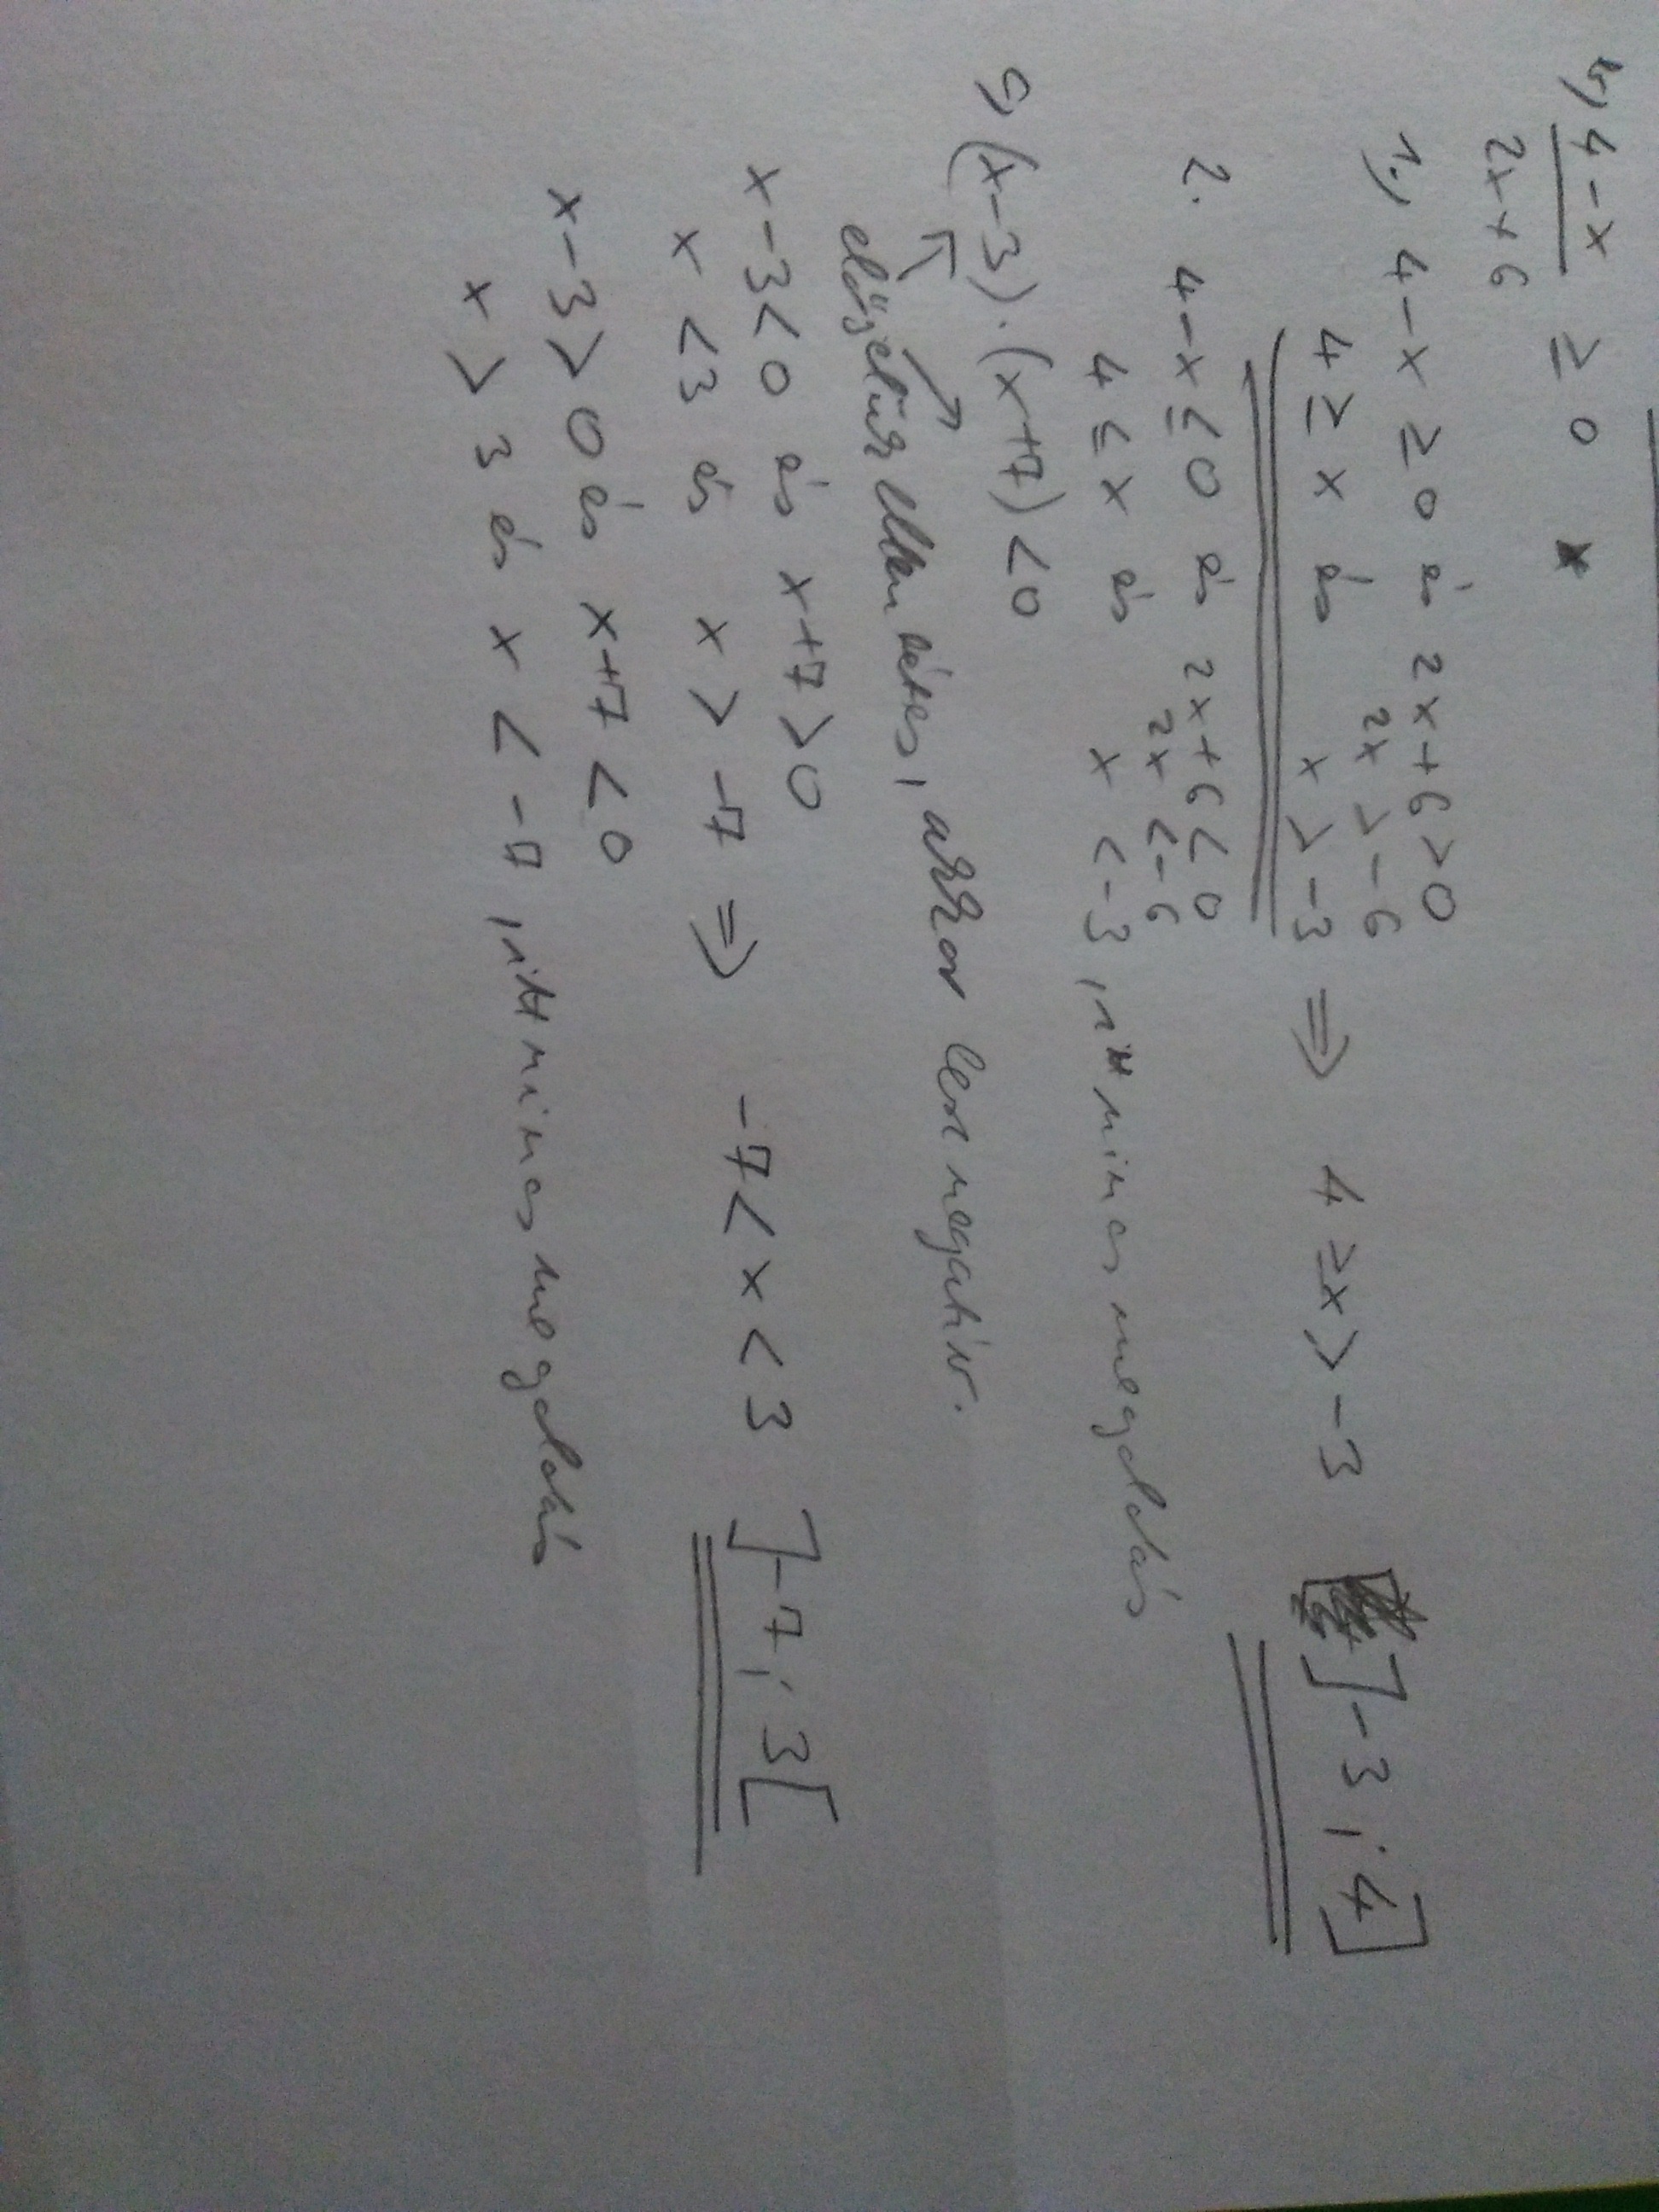 b, 4-x
2x+6 ≥ 0
1., 4-x ≥ 0 és 2x+6>0
2x > -6
4 ≥ x és x > -3 ⇒ 4 ≥ x > -3 ]-3 ; 4]
2. 4-x ≤ 0 és 2x+6<0
2x < -6
4 ≤ x és x < -3 , itt nincs megoldás
c, (x-3)·(x+7) < 0
előjelük ellentétes, akkor lesz negatív.
x-3<0 és x+7>0
x <3 és x > -7 ⇒ -7 < x < 3 ]-7 ; 3[
x-3>0 és x+7<0
x > 3 és x < -7 , itt nincs megoldás